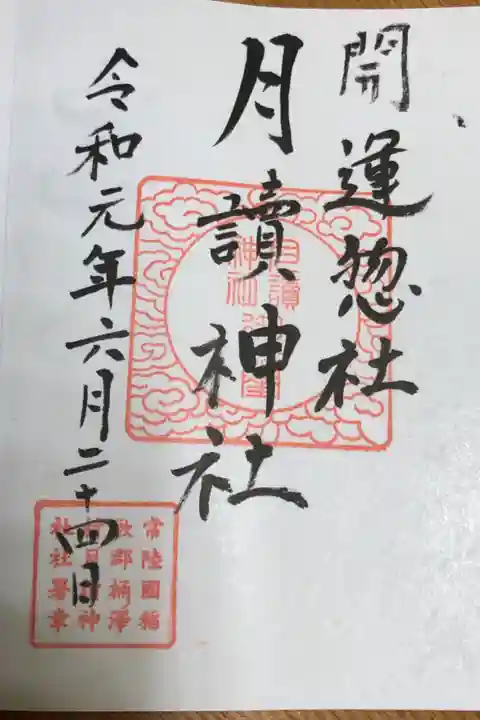 開運惣社
月讀神社
令和元年六月二十四日
常陸國稲
敷郡柄澤
神
社社署章